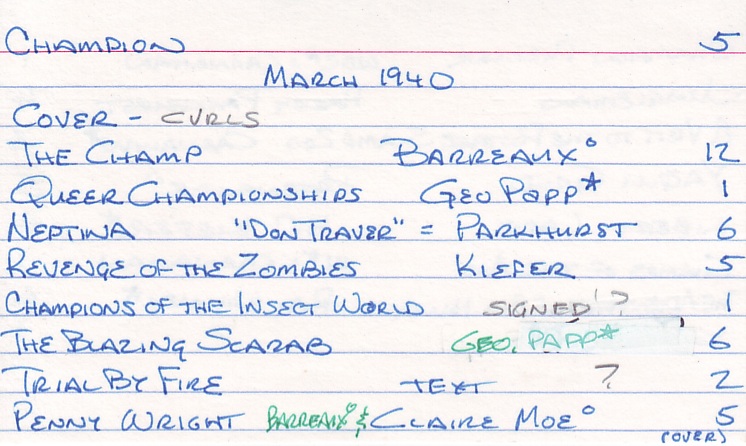 CHAMPION 5
MARCH 1940
COVER - CURLS
THE CHAMP BARREAUX° 12
QUEER CHAMPIONSHIPS GEO PAPP* 1
NEPTINA "DON TRAVER" = PARKHURST 6
REVENGE OF THE ZOMBIES KIEFER 5
CHAMPIONS OF THE INSECT WORLD SIGNED'? 1
THE BLAZING SCARAB GEO. PAPP* 6
TRIAL BY FIRE TEXT ? 2
PENNY WRIGHT BARREAUX° & CLAIRE MOE° 5
(OVER)